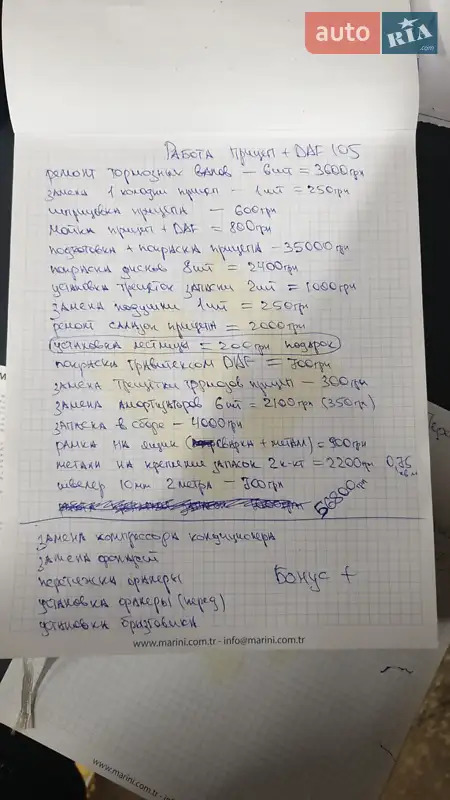 auto RIA .com
РАБОТА прицеп + DAF 105
ремонт тормозных валов – 6шт = 3600грн
замена 1 колодки прицеп – 1шт = 250грн
шприцевка прицепа – 600грн
мойка прицеп + DAF = 800грн
подготовка + покраска прицепа – 35000грн
покраска дисков 8шт = 2400грн
установка трещеток запаски 2шт = 1000грн
замена подушки 1шт = 250грн
ремонт прицепа = 2000грн
установка лестницы = 200грн подарок
покраска гравитексом DAF = 700грн
замена трещетки тормозов прицеп – 300грн
замена амортизаторов 6шт = 2100грн (350грн)
запаска в сборе – 4000грн
рамка на ящик (сварка + метал) = 900грн
метали на крепление запасок 2к-кт = 2200грн 0,75
швелер 10мм 2метра – 700грн
56800грн
замена компрессора кондиционера
замена фонарей
перетяжка фанеры
установка фанеры (перед)
установка брызговика
Бонус +
www.marini.com.tr - info@marini.com.tr
www.marini.com.tr